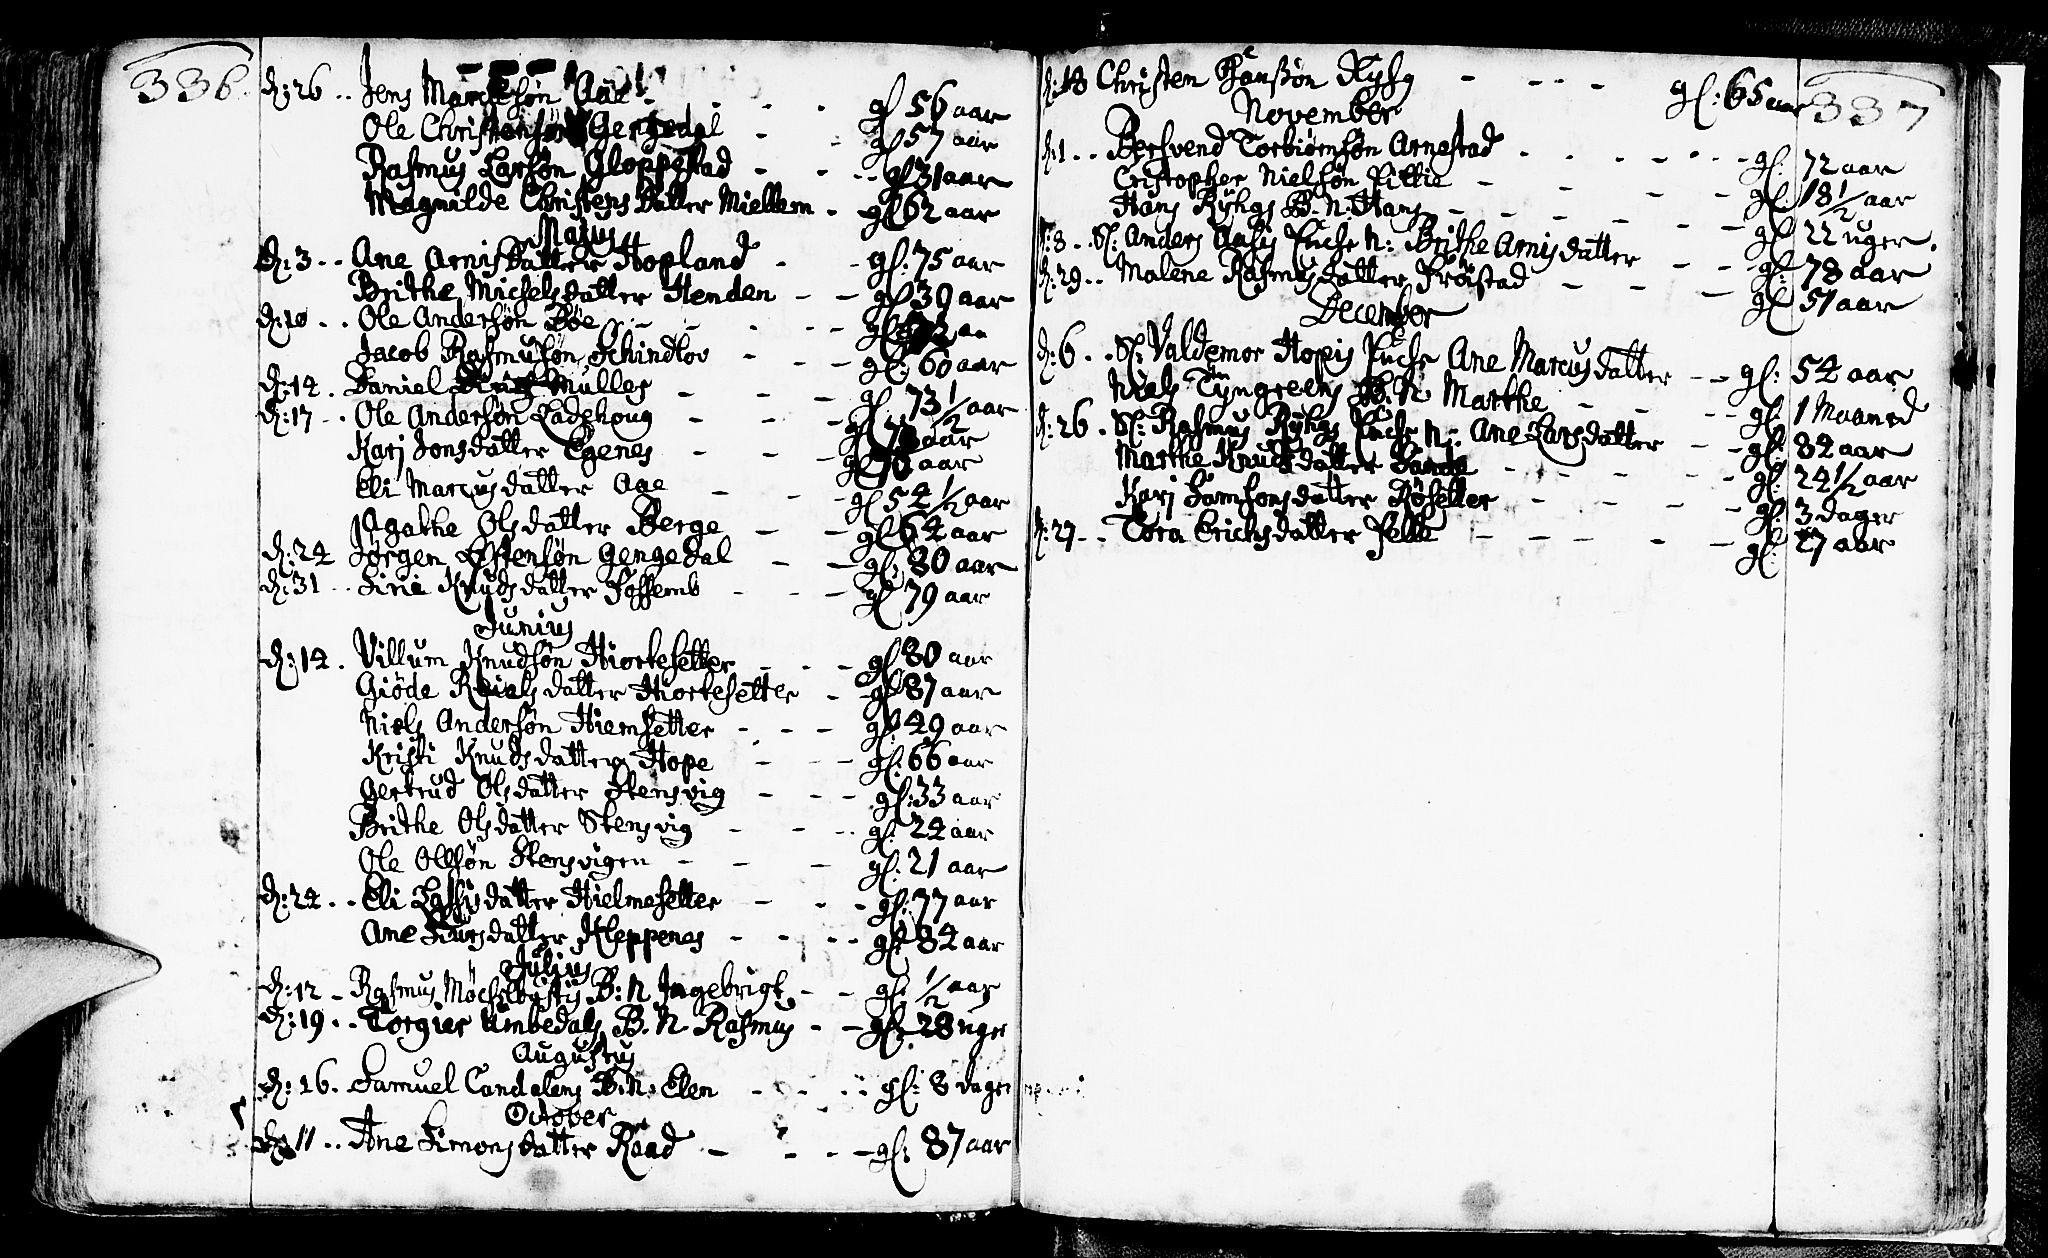 336.
d: 26 .. Jens Marcusøn Aae - gl 56 aar
Ole Christensøn Gengedal - gl 57 aar
Rasmus Larsøn Gloppestad - gl 31 aar
Magnilde Christens Datter Miellem - gl 62 aar
Majus
d: 3 .. Ane Arnis Datter Hopland - gl: 75 aar
Brithe Michels datter Henden - gl 39 aar
d: 10 .. Ole Andersøn Bøe - gl
Jacob Rasmusøn Schindlov - gl: 60 aar
d: 14 . Daniel Muller - gl 73 1/2 aar
d: 17 .. Ole Andersøn Ladehoug - gl aar
Karj Jonsdatter Egenes - gl aar
Eli Marcusdatter Aae - gl 54 1/2 aar
Agathe Olsdatter Berge - gl 64 aar
d: 24 Jørgen Estensøn Gengedal - gl: 80 aar
d: 31 .. Sirie Knudsdatter Fossemb - gl 79 aar
Junius
d: 14 . Villum Knudsøn Hiortesetter - gl 80 aar
Giøde Reielsdatter Hiortesetter - gl 87 aar
Niels Andersøn Hiemsetter - gl: 49 aar
Kristi Knudsdatter Hope - gl: 66 aar
Gertrud Olsdatter Stensvig - gl: 33 aar
Brithe Olsdatter Stensvig - gl: 24 aar
Ole Olesøn Stensvigen - gl: 21 aar
d: 24 .. Eli Lassisdatter Hielmesetter - gl: 77 aar
Ane Siursdatter Kleppenes - gl: 84 aar
Julius
d: 12 - Rasmus Møchlebystis B: N Ingebrigt - gl: 1/2 aar
d: 19 .. Torgier Umbedals B. N. Rasmus - gl: 28 uger
Augustus
d: 26 . Samuel Candalens B: N: Elen - gl: 8 dager
October
d: 11 .. Ane Simonsdatter Raad - gl: 87 aar
337
d: 18 Christen Hanssøn Ryssg - gl: 65 aar
November
d: 1 .. Bersvend Torbiørnsøn Arnestad - gl: 72 aar
Cristopher Nielsøn Fittie - gl: 18 1/2 aar
Hans Rykgs B: N: Hans - gl 22 uger.
d: 8 .. Sl: Anders Aasis Enche N: Brithe Arnisdatter - gl: 78 aar
d: 29 .. Malene Rasmusdatter Frøistad - gl 51 aar
December
d: 6 .. Sl: Valdemor Hopis Enche Ane Marcusdatter - gl: 54 aar
Niels Tyngreens B: N Marthe - gl 1 Maaned
d: 26 . Sl: Rasmus Rykgs Enche N: Ane Larsdatter - gl: 82 aar
Marthe Knudsdatter Sande - gl: 24 1/2 aar
Karj Samsonsdatter Røsetter - gl: 3 dager
d: 27 .. Tora Erichsdatter Felle - gl: 27 aar